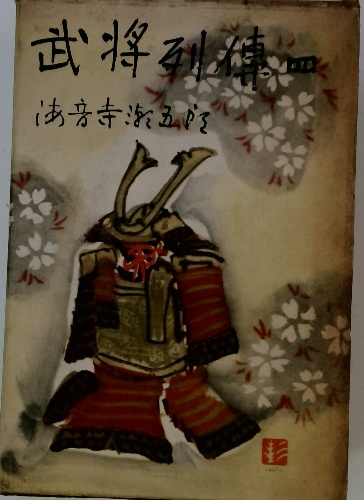 武将列傳 四
海音寺潮五郎
彭